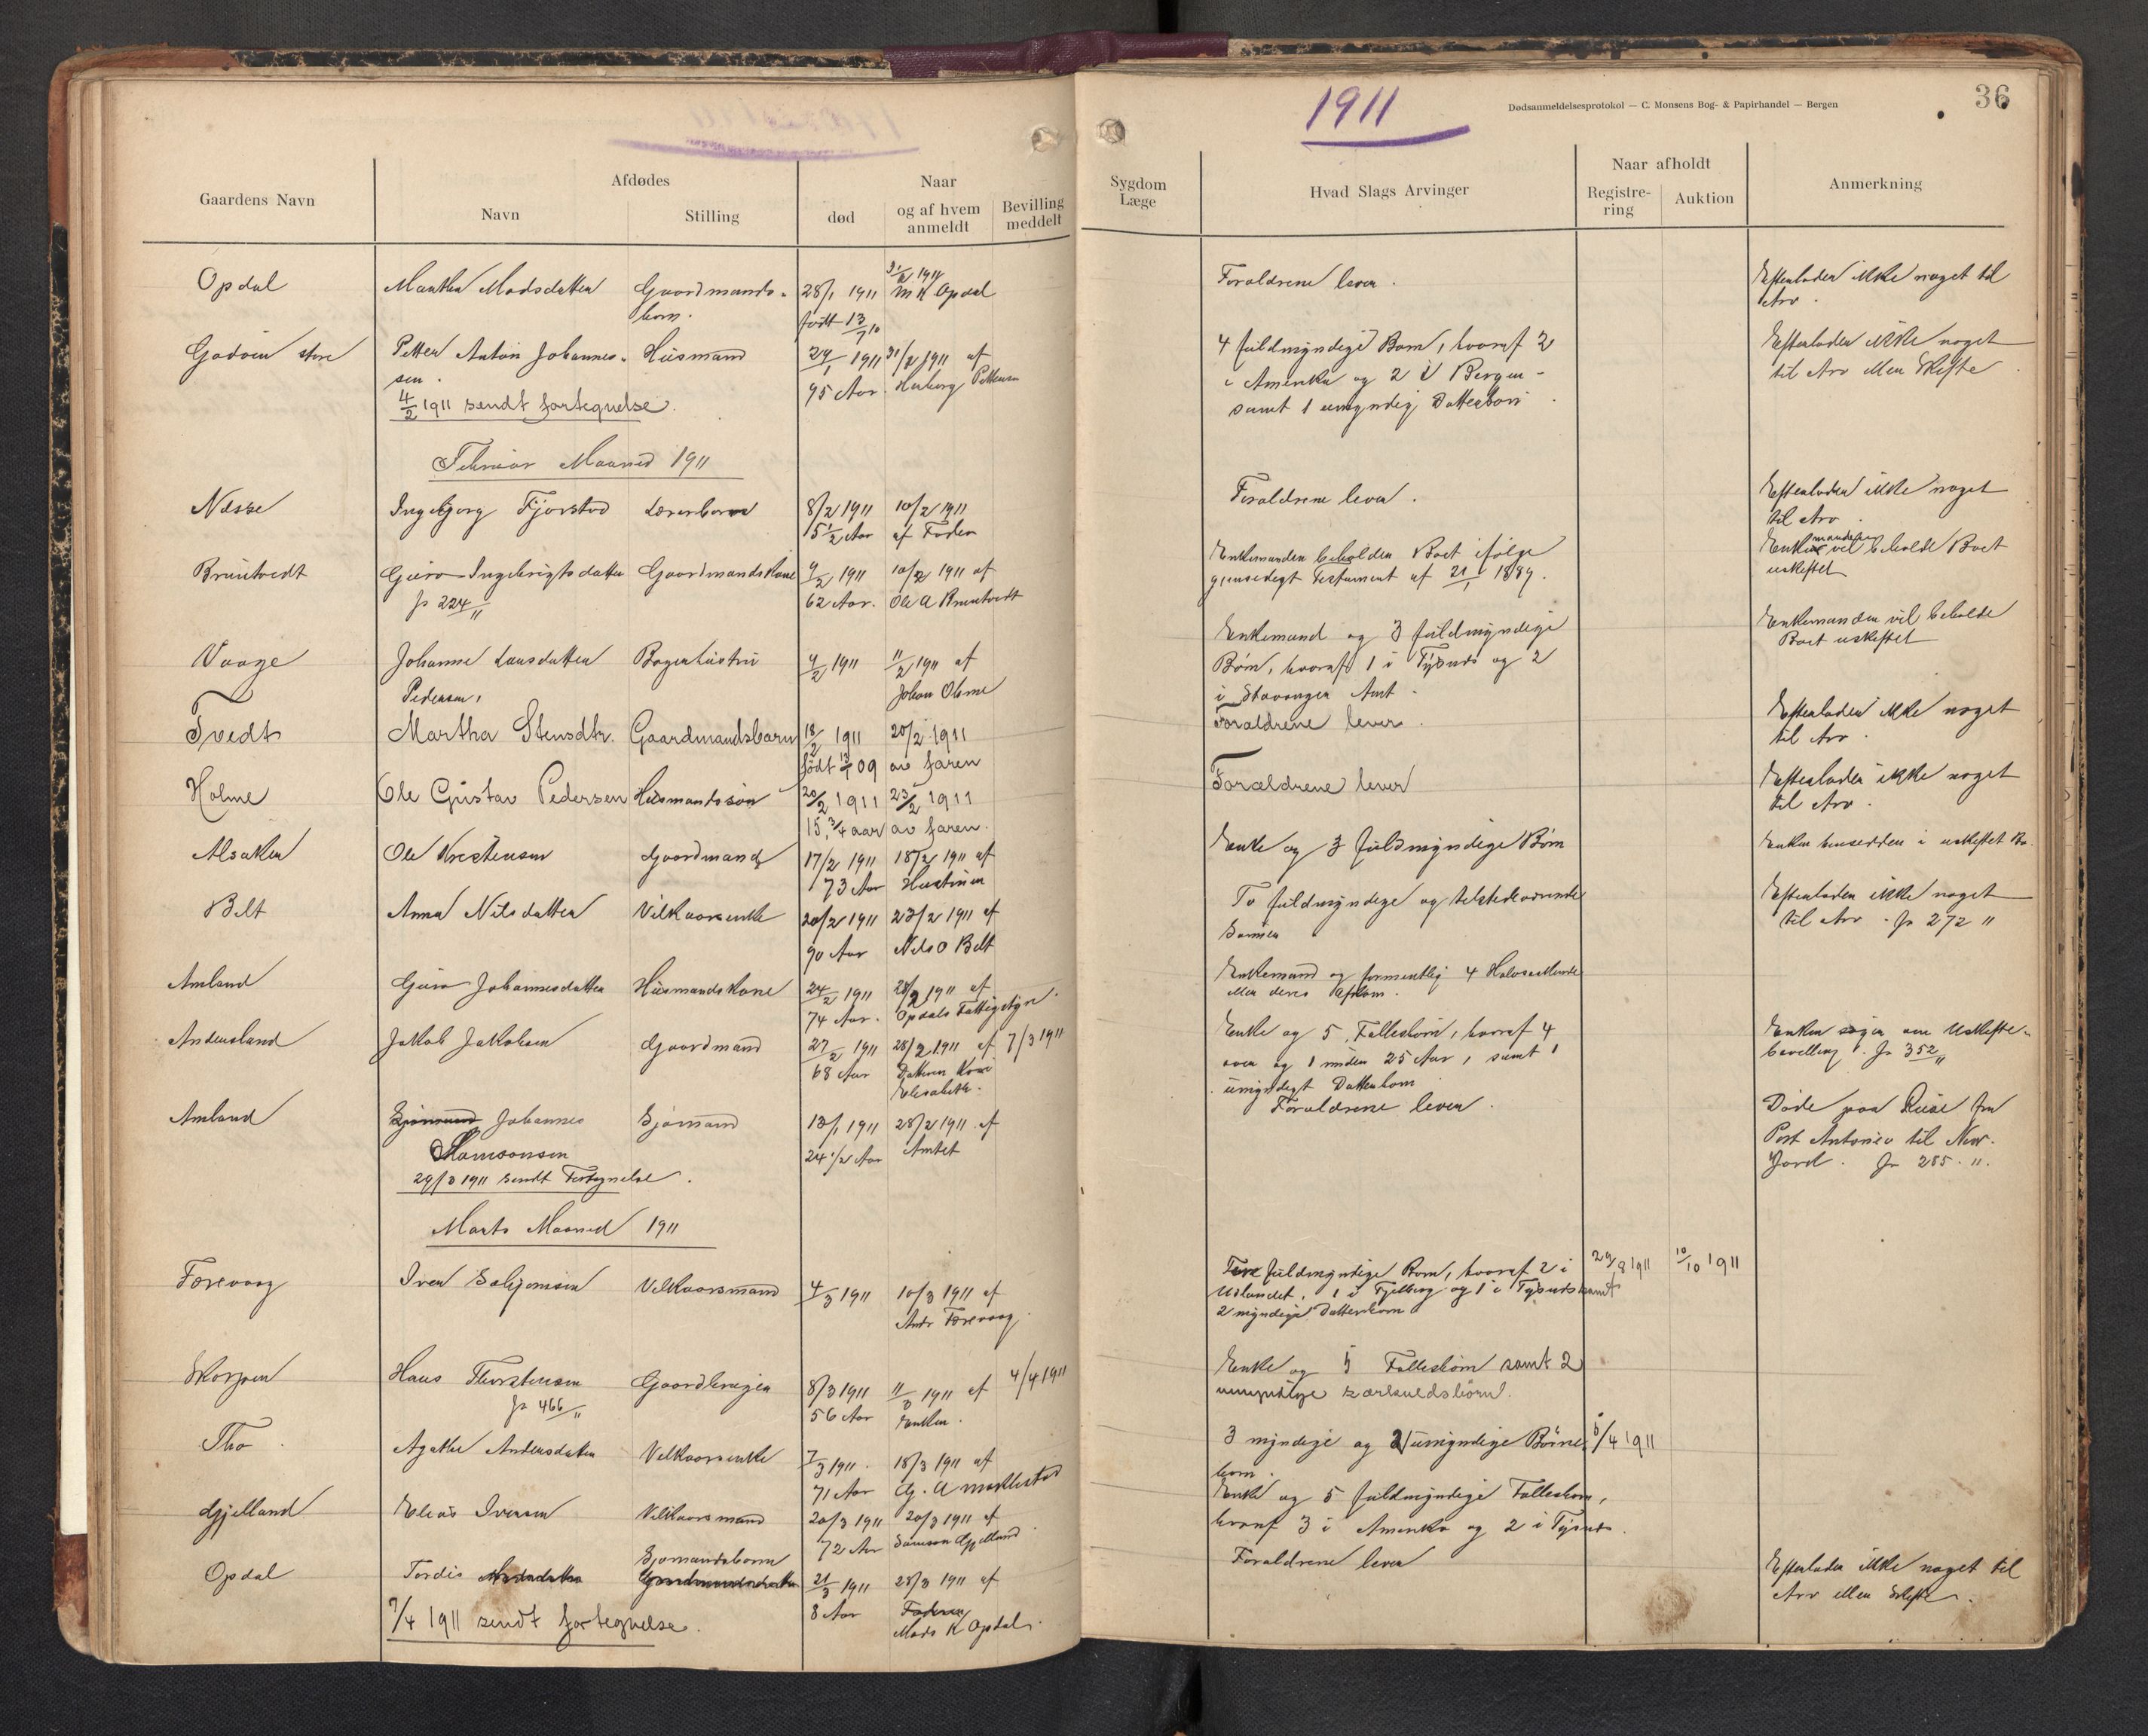 1911
Dødsanmeldelsesprotokol — C. Monsens Bog- & Papirhandel — Bergen
36
Gaardens Navn
Afdødes
Navn
Stilling
Naar
død
og af hvem
anmeldt
Bevilling
meddelt
Sygdom
Læge
Hvad Slags Arvinger
Naar afholdt
Registre-
ring
Auktion
Anmerkning
Opdal Martha Madsdatter Gaardmands- 28/1 1911 31/2 1911 Forældrene lever. Efterlader ikke noget til
barn. født 13/7 10 M K Opdal Arv.
Godøen store Petter Anton Johannes- Husmand 29/1 1911 31/2 1911 af 4 fuldmyndige Børn, hvoraf 2 Efterlader ikke noget
sen. 95 Aar. Herborg Pettersen i Amerika og 2 i Bergen - til Arv eller Skifte
4/2 1911 sendt fortegnelse. samt 1 umyndig Datterbarn.
Februar Maaned 1911
Næsse Ingebjorg Fjorstad Lærerbarn 8/2 1911 10/2 1911 Forældrene lever. Efterlader ikke noget
5 1/2 Aar af Fader til Arv
Bruntvedt Guro Ingebrigtsdatter Gaardmandskone 9/2 1911 10/2 1911 af Enkemanden beholder Boet ifølge Enkemanden vil beholde Boet
Jr 224/11 62 Aar. Ole A Bruntvedt gjensidigt Testament af 21/1 1889. uskiftet
Vaage Johanne Larsdatter Bagerhustru 9/2 1911 11/2 1911 af Enkemand og 3 fuldmyndige Enkemanden vil beholde
Pedersen, Johan Olsen Børn, hvoraf 1 i Tysnes og 2 Boet uskiftet
i Stavanger Amt.
Tvedt Martha Stensdtr. Gaardmandsbarn 18/2 1911 20/2 1911 Forældrene lever. Efterlader ikke noget
født 09 av faren til Arv.
Holme Ole Gustav Pedersen Husmandssøn 20/2 1911 23/2 1911 Forældrene lever Efterlader ikke noget
15 3/4 aar av faren. til Arv.
Alsaker Ole Kristensen Gaardmand 17/2 1911 18/2 1911 af Enke og 3 fuldmyndige Børn Enken hensidder i uskiftet Bo.
73 Aar Hustruen
Belt Anna Nilsdatter Vilkaarsenke 20/2 1911 23/2 1911 af To fuldmyndige og tilstedeværende Efterlader ikke noget
90 Aar Nils O Belt Sønner til Arv. Jr 272 11
Amland Guro Johannesdatter Husmandskone 24/2 1911 28/2 1911 af Enkemand og formentlig 4 Halvsøskende
74 Aar. Opdals Fattigstyre. eller deres Afkom.
Andersland Jakob Jakobsen Gaardmand 27/2 1911 28/2 1911 af 7/3 1911 Enke og 5 Fællesbørn, hvoraf 4 Enken søger om Uskifte-
68 Aar Datteren Kari over og 1 under 25 Aar, samt 1 bevilling. Jr 352/11
Elisabeth. umyndigt Datterbarn
Amland Johannes Sjømand 13/1 1911 28/2 1911 af Forældrene lever. Døde paa Reise fra
Samsonsen 24 1/2 Aar Amtet Port Antonio til New-
29/3 1911 sendt Fortegnelse. York. Jr 285. 11.
Marts Maaned 1911
Færevaag Iver Salgomsen Vilkaarsmand 4/3 1911 10/3 1911 af Fire fuldmyndige Børn, hvoraf 2 i 29/8 1911 10/10 1911
Andr Færevaag Udlandet, 1 i Fjelberg og 1 i Tysnes samt
2 myndige Datterbørn
Skorpen Hans Thorstensen Gaardbruger 8/3 1911 11/3 1911 af 4/4 1911 Enke og 5 Fællesbørn samt 2
Jr 466/11 56 Aar Enken. umyndige særkuldsbørn.
Tho Agathe Andersdatter Vilkaarsenke 7/3 1911. 18/3 1911 af 3 myndige og 2 umyndige Børne- 5/4 1911
71 Aar G. A Mæhlestad børn.
Gjelland Elias Iversen Vilkaarsmand 20/3 1911 20/3 1911 af Enke og 5 fuldmyndige Fællesbørn,
72 Aar Samson Gjelland hvoraf 3 i Amerika og 2 i Tysnes.
Opdal Tordis Sjømandsbarn 21/3 1911 28/3 1911 af Forældrene lever Efterlader ikke noget til
8 Aar Faderen Arv eller Skifte.
7/4 1911 sendt fortegnelse. Mads K Opdal.